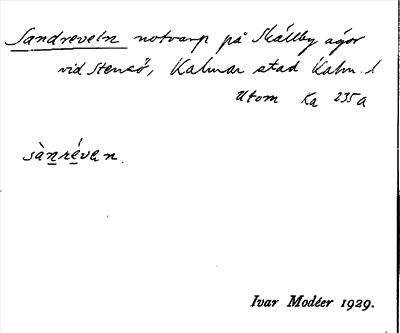 Sandreveln notvarp på Skällby ägor
vid Stensö, Kalmar stad Kalm. l
Utom Ka 235a
sànréven.
Ivar Modéer 1929.